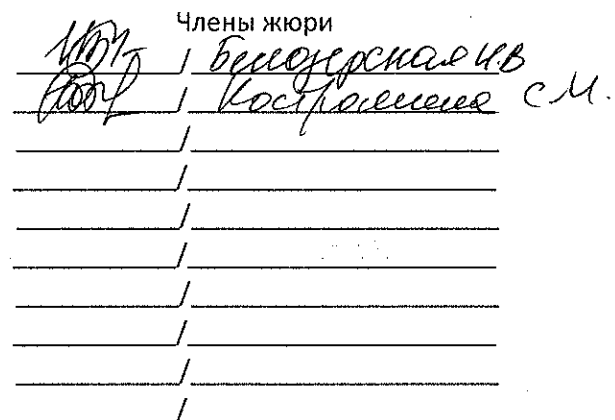 Члены жюри
/ Белозерская И.В
/ Костромина С.М.
/
/
/
/
/
/
/
/